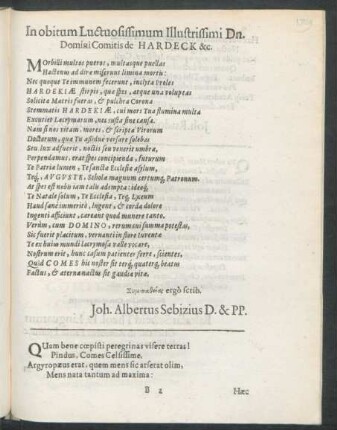 In obitum Luctuosissimum Illustrissimi Dn.
Domini Comitis de HARDECK &c.
MOrbilli multos pueros, multasque puellas
Hactenus ad diræ miserunt limina mortis:
Nec quoque Te immunem fecerunt, inclyta Proles
HARDEKIÆ stirpis, qua spes, atque una voluptas
Solicitæ Matris fueras, & pulchra Corona
Stemmatis HARDEKIÆ, cui mors Tua flumina multa
Excutiet Lacrymarum, nec justa sine causa.
Nam si nos vitam, mores, & scripta Virorum
Doctorum, qua Tu assidue versare solebas
Seu lux adfuerit, noctis seu venerit umbra,
Perpendamus, erat spes concipienda, futurum
Te Patria lumen, Te sancta Ecclesia asylum,
Teq;, AUGUSTE, Schola magnum certumq; Patronum.
At spes est nobis jam talis adempta: ideoq;
Te Natale solum, Te Ecclesia, Teq; Lyceum
Haud sane immerito, lugent, & corda dolore
Ingenti afficiunt, careant quod munere tanto.
Verùm, cum DOMINO, rerum cui summa potestas,
Sic fuerit placitum, vernanti in flore juventa
Te ex hujus mundi lacrymosa valle vocare,
Nostrum erit, hunc casum patienter ferre, scientes,
Quòd COMES his noster sit terq; quaterq; beatus
Factus, & æterna nactus sit gaudia vita.
Συμπαθείας ergò scrib.
Joh. Albertus Sebizius D. & PP.
QUam bene cœpisti peregrinas visere terras!
Pindus. Comes Celsissime.
Argyropæus erat, quem mens sic atserat olim,
Mens nata tantum ad maxima:
B 2
Hæc